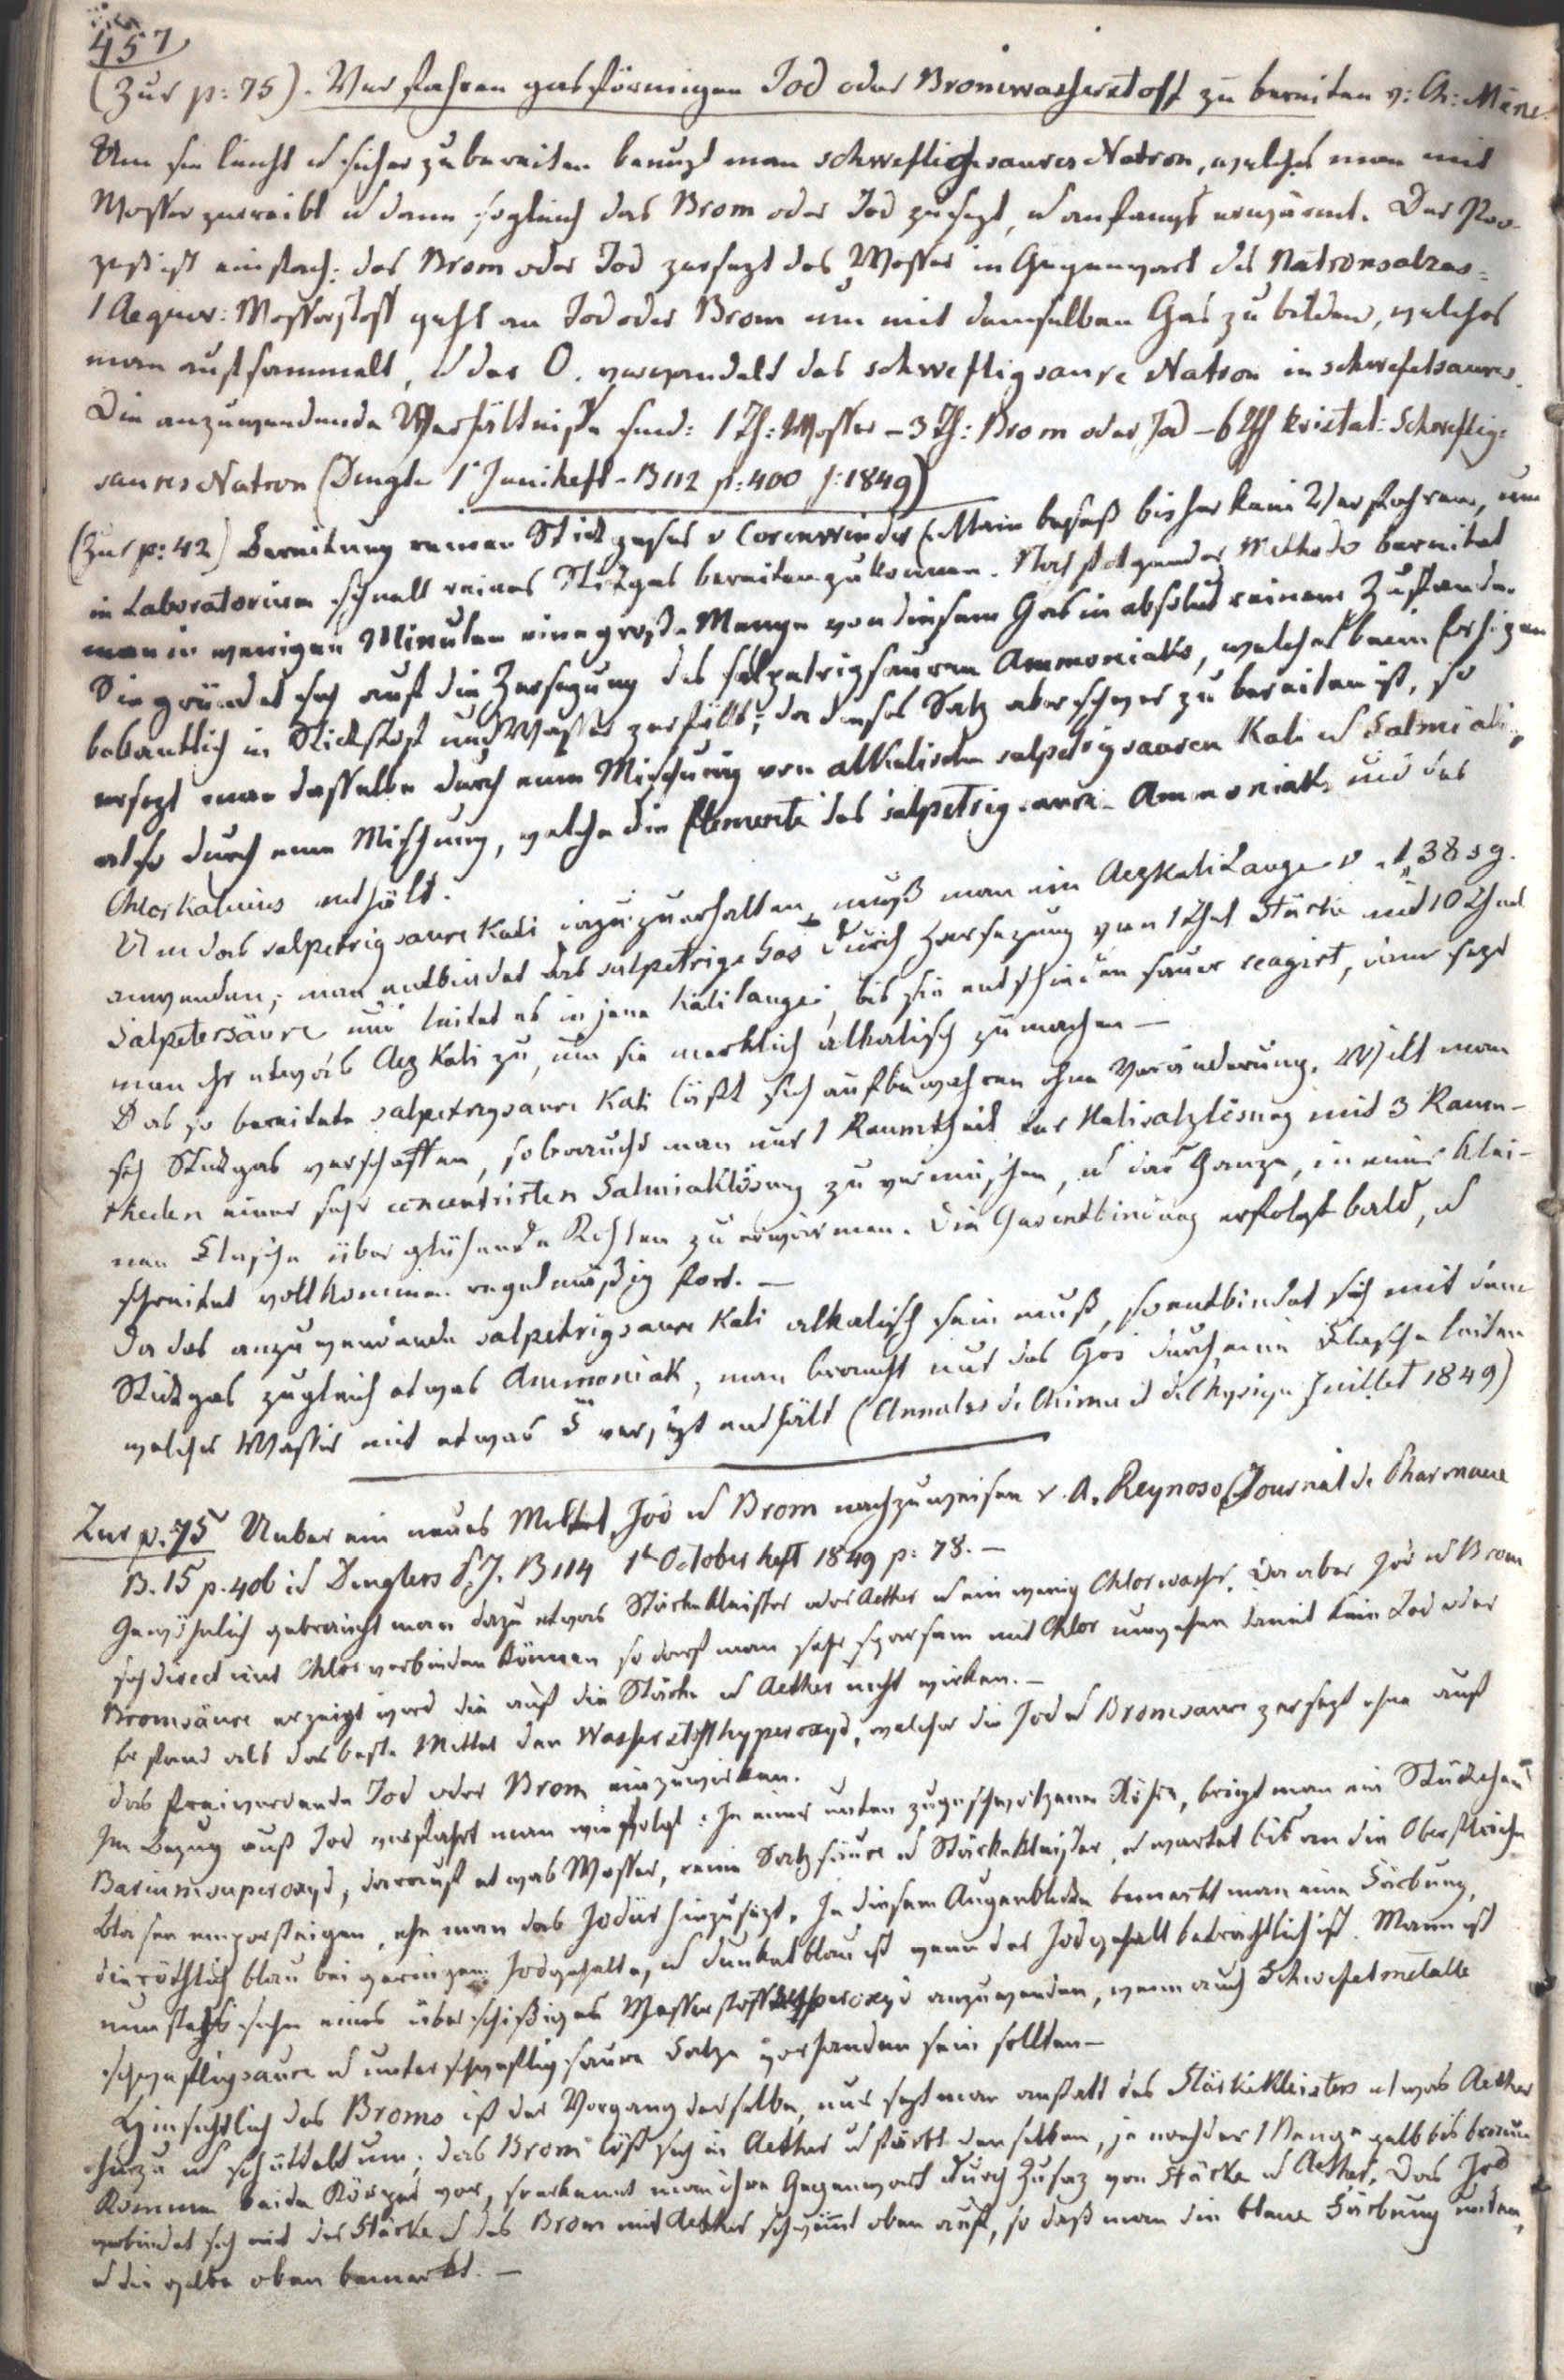 457
(Zur p: 75). Verfahren gasförmigen Jod oder Bromwasserstoff zu bereiten v: Ch: Mène.
Um sie leicht u sicher zu bereiten benuzt man schwefligsaures Natron, welches man mit
Wasser zerreibt u dann sogleich das Brom oder Jod zusezt, u anfangs erwärmt. Der Pro-
zeß ist einfach: das Brom oder Jod zersezt das Wasser in Gegenwart des Natronsalzes=
1 Aequiv: Wasserstoff geht an Jod oder Brom um mit demselben Gas zu bilden, welches
man auffammelt, u der O. verwandelt das schwefligsaure Natron in schwefelsaures.
Die anzuwendende Verhältniße sind: 1 Th: Wasser – 3 Th: Brom oder Jod – 6 Th kristal: Schweflig=
saures Natron (Dingler 1t Juniheft - B 112 p: 400 j: 1849)
(Zur p: 42) Bereitung reinen Stickgases v Corenwinder (: Man besaß bisher kein Verfahren, um
in Laboratorium schnell reines Stickgas bereiten zu können. Nach folgender Methode bereitet
man in wenigen Minuten eine große Menge von diesem Gas in absolut reinem Zustande.
Sie gründet sich auf die Zersezung des salpetrigsauren Ammoniaks, welches beim Erhizen
bekantlich in Stickstoff und Wasser zerfällt; da dieses Salz aber schwer zu bereiten ist, so
ersezt man dasselbe durch eine Mischung von alkalischen salpetrigsauren Kali u Salmiak,
also durch eine Mischung, welche die Elemente des salpetrigsauren Ammoniaks und des
Chlorkaliums enthält.
Um das salpetrigsaure Kali dazu zu erhalten, muß man ein Aezkali Lauge v 1,38 sg.
anwenden; man entbindet das salpetrige Gas durch Zersezung von 1 Thl Stärke mit 10 Thl
Salpetersäure und leitet es in jene Kalilauge, bis sie entschieden sauer reagirt, dann sezt
man ihr etwas Aez Kali zu, um sie merklich alkalisch zu machen –
Das so bereitete salpetrigsaure Kali läßt sich aufbewahren ohne Veränderung. Will man
sich Stickgas verschaffen, so braucht man nur 1 Raumtheil der Kalisalzlösung mit 3 Raum-
theilen einer sehr concentrirten Salmiaklösung zu vermischen, u das Ganze, in einer klei-
nen Flasche über glühende Kohlen zu erwärmen. Die Gasentbindung erfolgt bald, u
schreitet vollkommen regelmäßig fort. –
Da das anzuwendende salpetrigsaure Kali alkalisch sein muß, so entbindet sich mit dem
Stickgas zugleich etwas Ammoniak, man braucht nur das Gas durch eine Flasche leiten
welche Wasser mit etwas versezt enthält (Annales de Chimie et de Physique Juillet 1849)
Zur p. 75 Ueber ein neues Mittel, Jod u Brom nachzuweisen v. A. Reynoso (Journal de Pharmacie
B. 15 p. 406 id Dinglers p. J. B 114 1t October heft 1849 p: 78. –
Gewöhnlich gebraucht man dazu etwas Stärkekleister oder Aether u ein wenig Chlorwasser. Da aber Jod u Brom
sich direct mit Chlor verbinden können so darf man sehr sparsam mit Chlor umgehen damit kein Jod oder
Bromsäure erzeigt wird die auf die Stärke u Aether nicht wirken. –
Er fand als das beste Mittel den Wasserstoffhyperoxyd, welcher die Jod u Bromsäure zersezt ohne auf
das freiwerdende Jod oder Brom einzuwirken.
In Bezug auf Jod verfährt man wie folgt: In einer unten zugeschmolzenen Röhre, bringt man ein Stückchen
Bariumsuperoxyd, darauf etwas Wasser, reine Salzsäure u Stärkekleister, u wartet bis an die Oberfläche
Blasen emporsteigen, ehe man das Jodür hinzusezt. In diesem Augenblicke bemerkt man eine Färbung,
die röthlich blau bei geringem Jodgehalte, u dunkelblau ist wenn der Jodgehalt beträchtlich ist. Mann ist
im stande eines überschißiges Wasserstoffhyperoxyd anzuwenden, wenn auch Schwefelmetalle
schwefligsaure u unterschwefligsaure Salze vorhanden sein sollten –
Hinsichtlich des Broms ist der Vorgang derselbe, nur sezt man anstatt des Stärkekleisters etwas Aether
hinzu u schüttelt um; das Brom löst sich in Aether u färbt denselben, je nach der Menge gelb bis braun
Kommen beide Körper vor, so erkennt man ihre Gegenwart durch Zusaz von Stärke u Aether. Das Jod
verbindet sich mit der Stärke u das Brom mit Aether schwimt oben auf, so daß man die blaue Färbung unten,
u die gelbe oben bemerkt. –